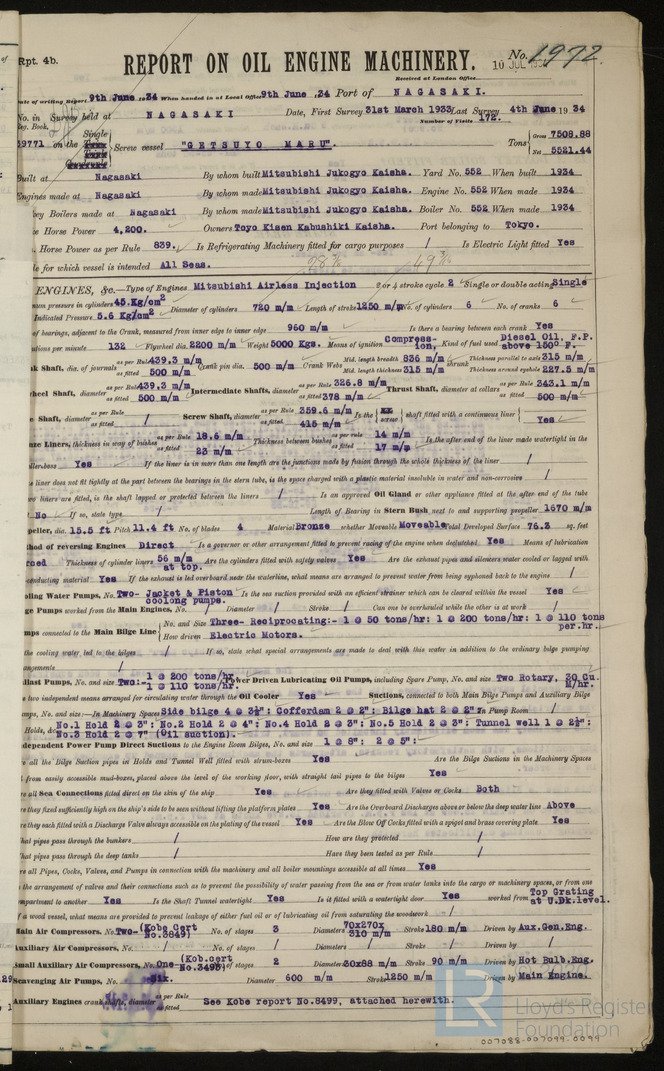 Rpt. 4b.
REPORT ON OIL ENGINE MACHINERY.
No. 1972
Received at London Office
10 JUL
Date of writing Report 9th June 34 When handed in at Local Office 9th June .34 Port of NAGASAKI.
No. in Survey held at NAGASAKI Date, First Survey 31st March 1933 Last Survey 4th June 19 34
Reg. Book. Number of Visits 172.
39771 on the Single Screw vessel "GETSUYO MARU". Tons Gross 7508.88
Net 5521.44
Built at Nagasaki By whom built Mitsubishi Jukogyo Kaisha. Yard No. 552 When built 1934
Engines made at Nagasaki By whom made Mitsubishi Jukogyo Kaisha. Engine No. 552 When made 1934
key Boilers made at Nagasaki By whom made Mitsubishi Jukogyo Kaisha. Boiler No. 552 When made 1934
ke Horse Power 4,200. Owners Toyo Kisen Kabushiki Kaisha. Port belonging to Tokyo.
Horse Power as per Rule 839. Is Refrigerating Machinery fitted for cargo purposes / Is Electric Light fitted Yes
de for which vessel is intended All Seas.
ENGINES, &c.—Type of Engines Mitsubishi Airless Injection 2 or 4 stroke cycle 2 Single or double acting Single
mum pressure in cylinders 45 Kg/cm2 Diameter of cylinders 720 m/m Length of stroke 1250 m/m No. of cylinders 6 No. of cranks 6
Indicated Pressure 5.6 Kg/cm2
of bearings, adjacent to the Crank, measured from inner edge to inner edge 960 m/m Is there a bearing between each crank Yes
utions per minute 132 Flywheel dia. 2200 m/m Weight 5000 Kgs. Means of ignition Compression, Kind of fuel used Diesel Oil, F.P. above 150° F.
nk Shaft, dia. of journals as per Rule 439.3 m/m as fitted 500 m/m Crank pin dia. 500 m/m Crank Webs Mid. length breadth 836 m/m Mid. length thickness 315 m/m shrunk Thickness parallel to axis 315 m/m Thickness around eyehole 227.5 m/m
heel Shaft, diameter as per Rule 439.3 m/m as fitted 500 m/m Intermediate Shafts, diameter as per Rule 326.8 m/m as fitted 378 m/m Thrust Shaft, diameter at collars as per Rule 343.1 m/m as fitted 500 m/m
e Shaft, diameter as per Rule as fitted / Screw Shaft, diameter as per Rule 359.6 m/m as fitted 415 m/m Is the screw shaft fitted with a continuous liner Yes
nze Liners, thickness in way of bushes as per Rule 18.6 m/m as fitted 23 m/m Thickness between bushes as per rule 14 m/m as fitted 17 m/m Is the after end of the liner made watertight in the
ellerboss Yes If the liner is in more than one length are the junctions made by fusion through the whole thickness of the liner /
e liner does not fit tightly at the part between the bearings in the stern tube, is the space charged with a plastic material insoluble in water and non-corrosive /
wo liners are fitted, is the shaft lapped or protected between the liners / Is an approved Oil Gland or other appliance fitted at the after end of the tube
No If so, state type / Length of Bearing in Stern Bush next to and supporting propeller 1670 m/m
peller, dia. 15.5 ft Pitch 11.4 ft No. of blades 4 Material Bronze whether Moveable Moveable Total Developed Surface 76.3 sq. feet
thod of reversing Engines Direct Is a governor or other arrangement fitted to prevent racing of the engine when declutched Yes Means of lubrication
rced Thickness of cylinder liners 56 m/m at top. Are the cylinders fitted with safety valves Yes Are the exhaust pipes and silencers water cooled or lagged with
conducting material Yes If the exhaust is led overboard near the waterline, what means are arranged to prevent water from being syphoned back to the engine /
oling Water Pumps, No. Two- Jacket & Piston cooling pumps. Is the sea suction provided with an efficient strainer which can be cleared within the vessel Yes
ge Pumps worked from the Main Engines, No. / Diameter / Stroke / Can one be overhauled while the other is at work /
mps connected to the Main Bilge Line No. and Size Three- Reciprocating:- 1 @ 50 tons/hr: 1 @ 200 tons/hr: 1 @ 110 tons per.hr.
How driven Electric Motors.
the cooling water led to the bilges / If so, state what special arrangements are made to deal with this water in addition to the ordinary bilge pumping
angements /
llast Pumps, No. and size Two:- 1 @ 200 tons/hr. 1 @ 110 tons/hr. Power Driven Lubricating Oil Pumps, including Spare Pump, No. and size Two Rotary, 20 Cu. M/hr.
e two independent means arranged for circulating water through the Oil Cooler Yes Suctions, connected to both Main Bilge Pumps and Auxiliary Bilge
mps, No. and size:—In Machinery Spaces Side bilge 4 @ 3½": Cofferdam 2 @ 2": Bilge hat 2 @ 2" In Pump Room /
Holds, &c. No.1 Hold 2 @ 3": No.2 Hold 2 @ 4": No.4 Hold 2 @ 3": No.5 Hold 2 @ 3": Tunnel well 1 @ 2½":
No.3 Hold 2 @ 7" (Oil suction).
dependent Power Pump Direct Suctions to the Engine Room Bilges, No. and size 1 @ 8": 2 @ 5":
e all the Bilge Suction pipes in Holds and Tunnel Well fitted with strum-boxes Yes Are the Bilge Suctions in the Machinery Spaces
from easily accessible mud-boxes, placed above the level of the working floor, with straight tail pipes to the bilges Yes
re all Sea Connections fitted direct on the skin of the ship Yes Are they fitted with Valves or Cocks Both
re they fixed sufficiently high on the ship's side to be seen without lifting the platform plates Yes Are the Overboard Discharges above or below the deep water line Above
re they each fitted with a Discharge Valve always accessible on the plating of the vessel Yes Are the Blow Off Cocks fitted with a spigot and brass covering plate Yes
hat pipes pass through the bunkers / How are they protected /
hat pipes pass through the deep tanks / Have they been tested as per Rule /
re all Pipes, Cocks, Valves, and Pumps in connection with the machinery and all boiler mountings accessible at all times Yes
the arrangement of valves and their connections such as to prevent the possibility of water passing from the sea or from water tanks into the cargo or machinery spaces, or from one
mpartment to another Yes Is the Shaft Tunnel watertight Yes Is it fitted with a watertight door Yes worked from Top Grating at U.Dk.level.
f a wood vessel, what means are provided to prevent leakage of either fuel oil or of lubricating oil from saturating the woodwork /
Main Air Compressors, No. Two- (Kobe Cert No.3849) No. of stages 3 Diameters 70x270x 310 m/m Stroke 180 m/m Driven by Aux.Gen.Eng.
Auxiliary Air Compressors, No. / No. of stages / Diameters / Stroke / Driven by /
Small Auxiliary Air Compressors, No. One- (Kob.cert No.3493) No. of stages 2 Diameters 30x88 m/m Stroke 90 m/m Driven by Hot Bulb.Eng.
Scavenging Air Pumps, No. Six. Diameter 600 m/m Stroke 1250 m/m Driven by Main Engine.
Auxiliary Engines crank shafts, diameter as per Rule as fitted See Kobe report No.8499, attached herewith.
LR
Lloyd's Register
Foundation
007088-007099-0099